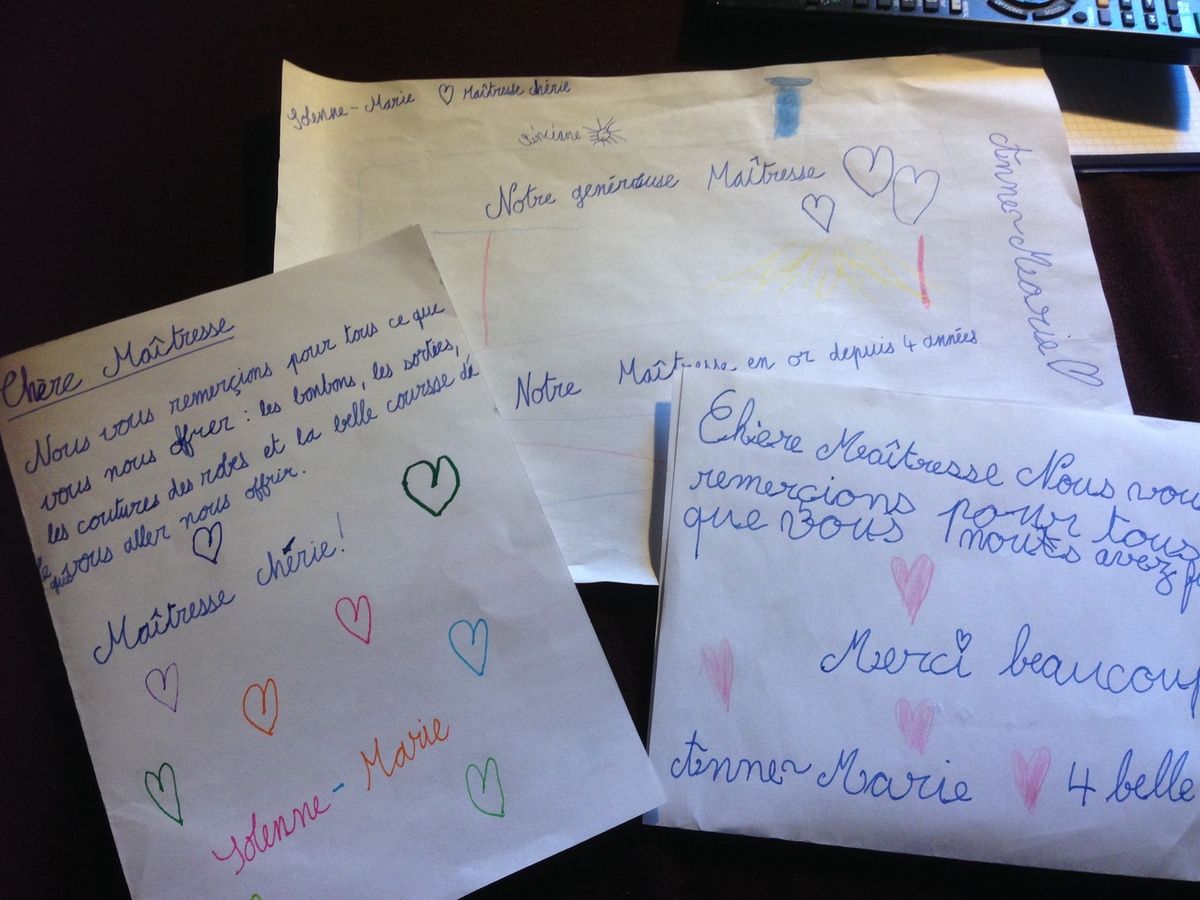 Solenne-Marie Maîtresse chérie
Notre genéreuse Maîtresse
Anne-Marie
Notre Maîtresse en or depuis 4 années
Chère Maîtresse
Nous vous remerçions pour tous ce que
vous nous offrer : les bonbons, les sorties,
les coutures des robes et la belle coursse dé
vous aller nous offrir.
Maîtresse chérie!
Solenne-Marie
Chère Maîtresse Nous vou
remerçions pour tous
que vous nous avez f
Merci beaucoup
Anne-Marie 4 belle